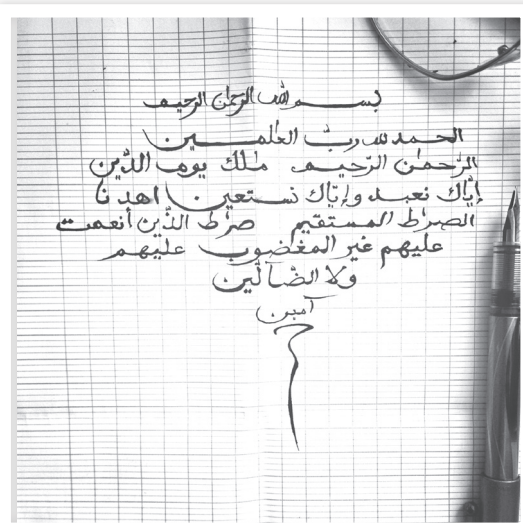 بسم الله الرحمان الرحيم
الحمد لله ربّ العلمين
الرّحمٰن الرّحيم ملك يوم الدّين
إيّاك نعبد وإيّاك نستعين اهدنا
الصراط المستقيم صراط الذّين أنعمت
عليهم غير المغضوب عليهم
ولا الضآلّين
آمين